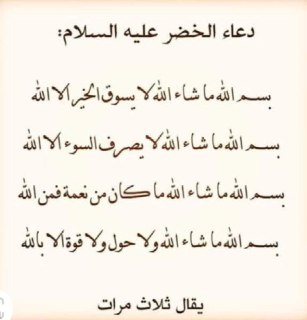 دعاء الخضر عليه السلام:
بسم الله ما شاء الله لا يسوق الخير الا الله
بسم الله ما شاء الله لا يصرف السوء الا الله
بسم الله ما شاء الله ما كان من نعمة فمن الله
بسم الله ما شاء الله ولا حول ولا قوة الا بالله
يقال ثلاث مرات